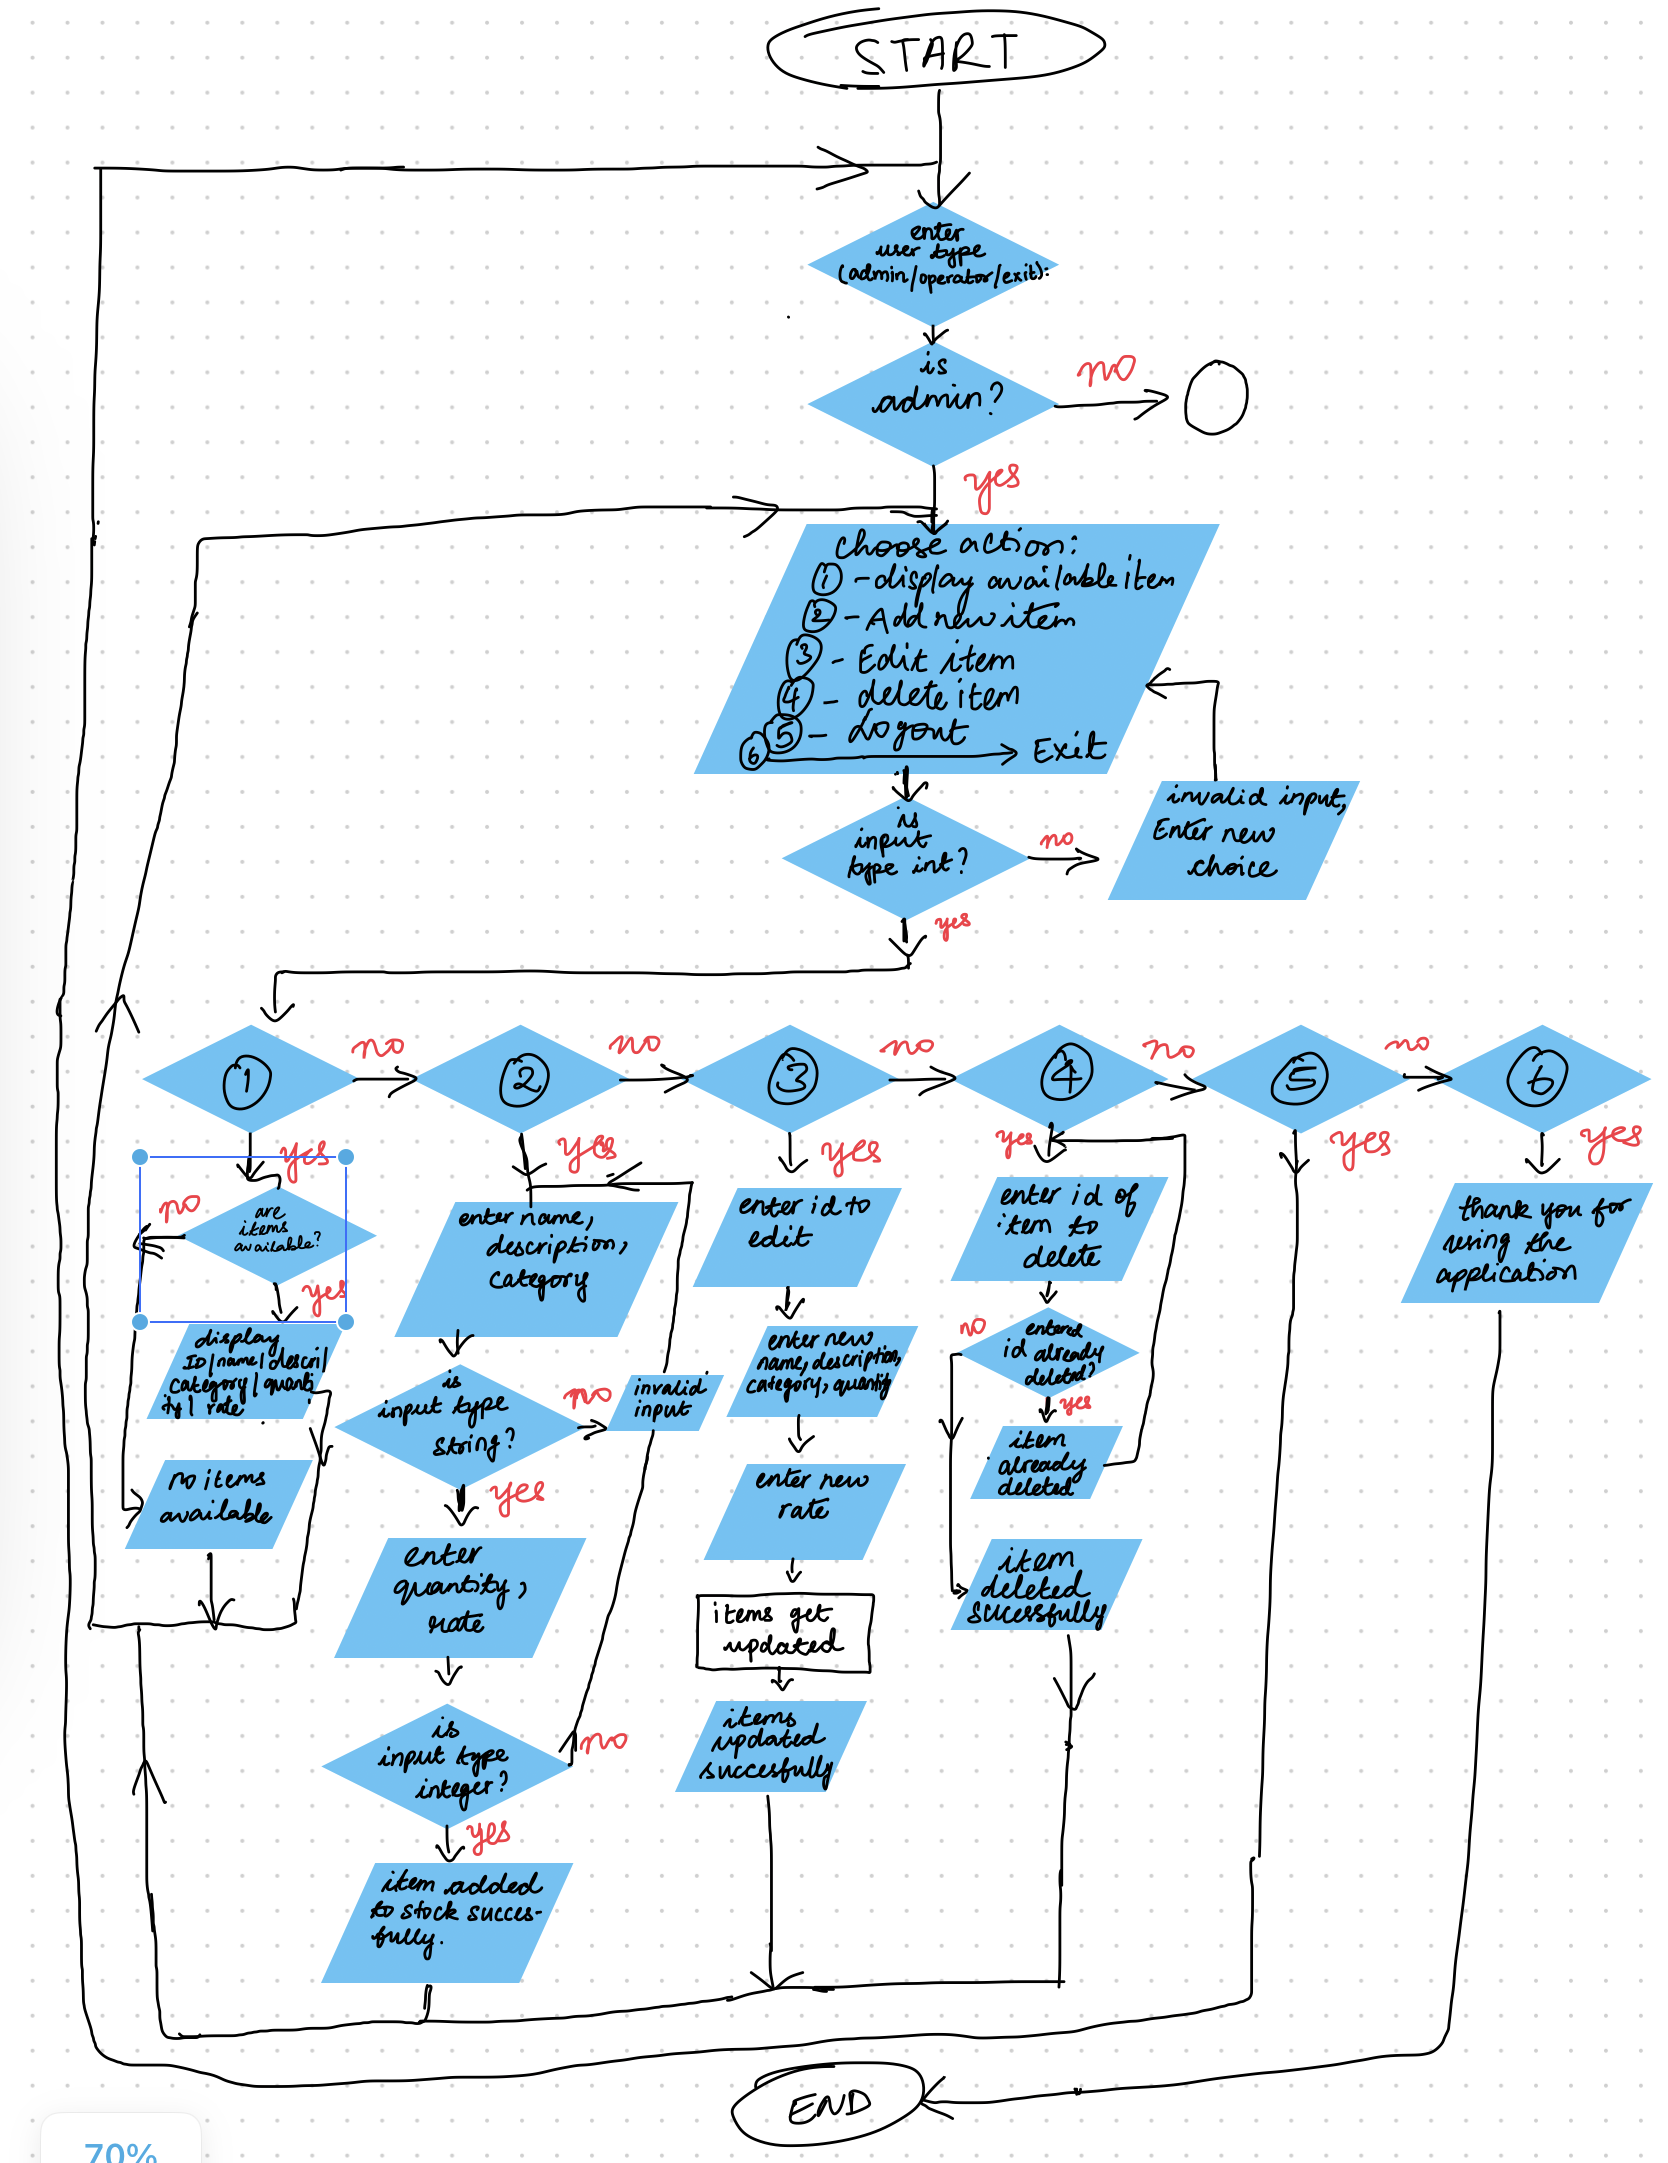 START
enter
user type
(admin/operator/exit):
is
admin?
no
yes
choose action:
① - display available item
② - Add new item
③ - Edit item
④ - delete item
⑤ - Logout
⑥ → Exit
is
input
type int?
no
invalid input,
Enter new
choice
yes
①
no
②
no
③
no
④
no
⑤
no
⑥
yes
are
items
available?
no
yes
display
ID/name/descri/
category/quanti
ty/rate
no items
available
yes
enter name,
description,
category
is
input type
string?
no
invalid
input
yes
enter
quantity,
rate
is
input type
integer?
no
yes
item added
to stock succes-
fully.
yes
enter id to
edit
enter new
name, description,
category, quantity
enter new
rate
items get
updated
items
updated
succesfully
yes
enter id of
item to
delete
entered
id already
deleted?
no
yes
item
already
deleted
item
deleted
sucessfully
yes
yes
thank you for
using the
application
END
70%